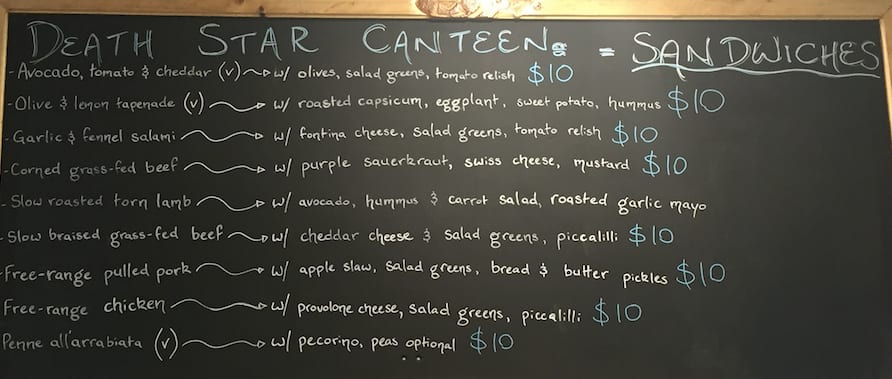 DEATH STAR CANTEENS = SANDWICHES
- Avocado, tomato & cheddar (v) → w/ olives, salad greens, tomato relish $10
- Olive & lemon tapenade (v) → w/ roasted capsicum, eggplant, sweet potato, hummus $10
- Garlic & fennel salami → w/ fontina cheese, salad greens, tomato relish $10
- Corned grass-fed beef → w/ purple sauerkraut, swiss cheese, mustard $10
- Slow roasted torn lamb → w/ avocado, hummus & carrot salad, roasted garlic mayo
- Slow braised grass-fed beef → w/ cheddar cheese & salad greens, piccalilli $10
- Free-range pulled pork → w/ apple slaw, salad greens, bread & butter pickles $10
Free-range chicken → w/ provolone cheese, salad greens, piccalilli $10
Penne all'arrabiata (v) → w/ pecorino, peas optional $10